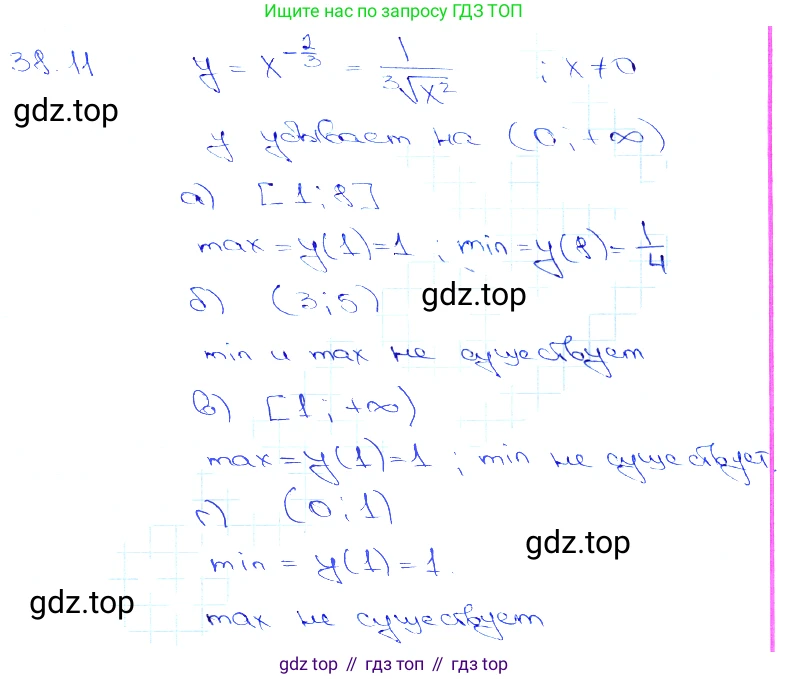 Ищите нас по запросу ГДЗ ТОП
38.11 y = x^{-2/3} = 1/∛x² ; x ≠ 0
gdz.top
y убывает на (0; +∞)
а) [1; 8]
max = y(1) = 1 ; min = y(8) = 1/4
б) (3; 5) gdz.top
min и max не существует
в) [1; +∞)
max = y(1) = 1 ; min не существует.
г) (0; 1)
min = y(1) = 1. gdz.top
gdz.top
max не существует
gdz top // гдз топ // gdz top